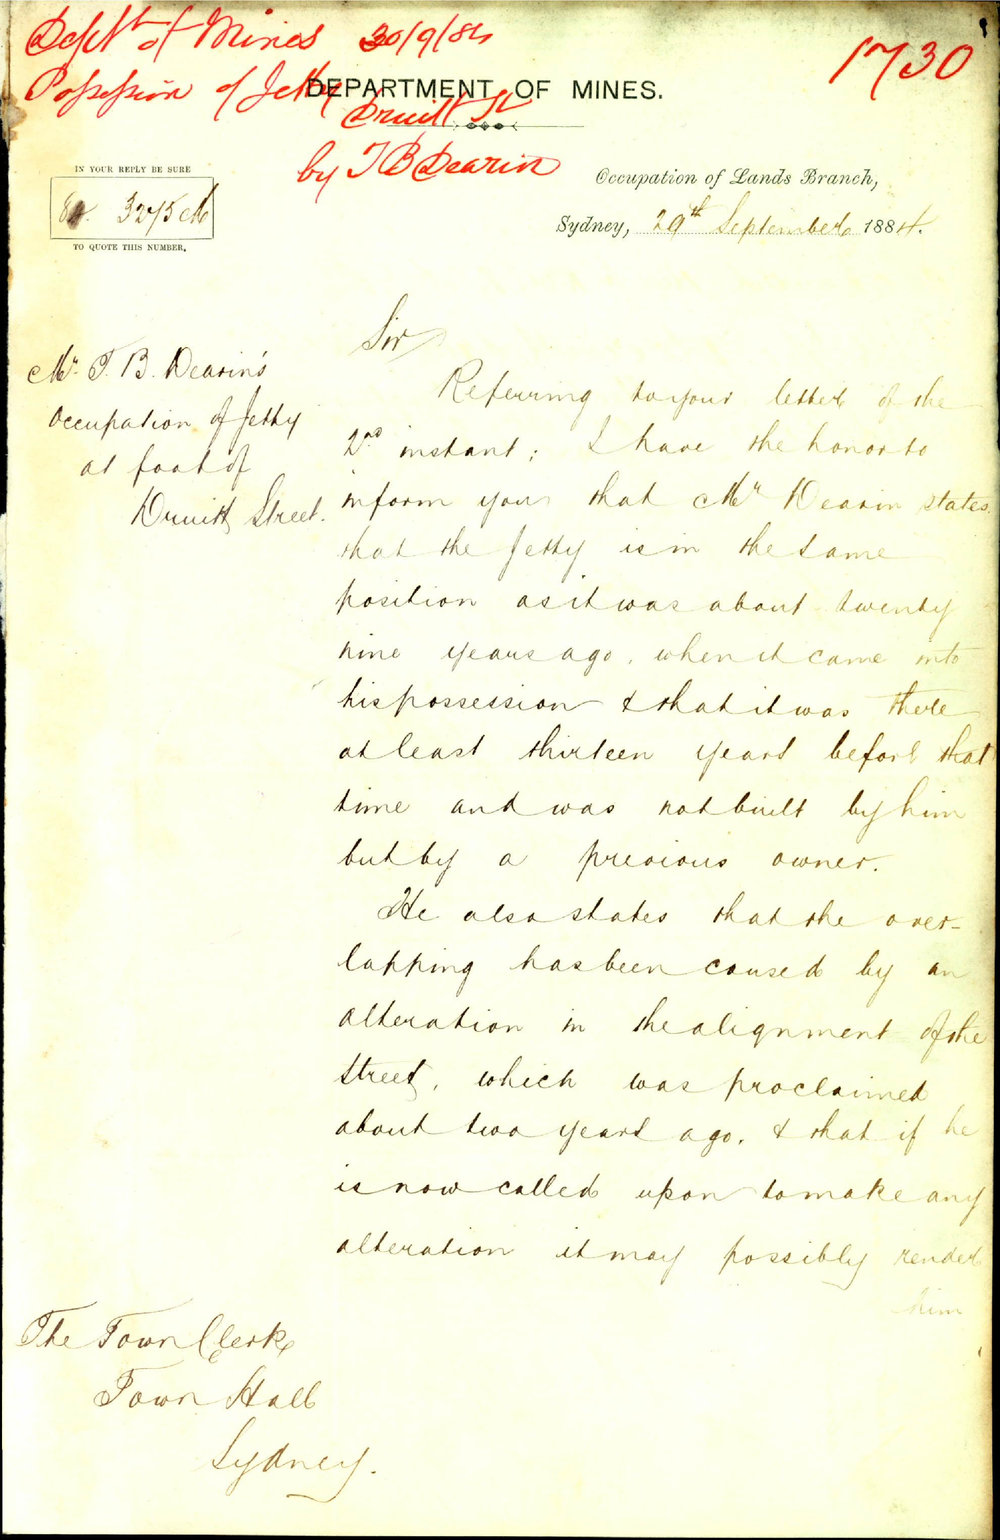 Dept of Mines 30/9/84
1730
Possession of Jetty
DEPARTMENT OF MINES.
Druitt St
by T B Dearin
IN YOUR REPLY BE SURE
84. 3275 M
TO QUOTE THIS NUMBER.
Occupation of Lands Branch,
Sydney, 29th September 1884.
Mr. T. B. Dearin's
Occupation of Jetty
at foot of
Druitt Street.
Sir
Referring to your letter of the
2nd instant; I have the honor to
inform you that Mr Dearin states
that the Jetty is in the same
position as it was about twenty
nine years ago, when it came into
his possession & that it was there
at least thirteen years before that
time and was not built by him
but by a previous owner.
He also states that the over-
lapping has been caused by an
alteration in the alignment of the
Street, which was proclaimed
about two years ago, & that if he
is now called upon to make any
alteration it may possibly render
him
The Town Clerk
Town Hall
Sydney.